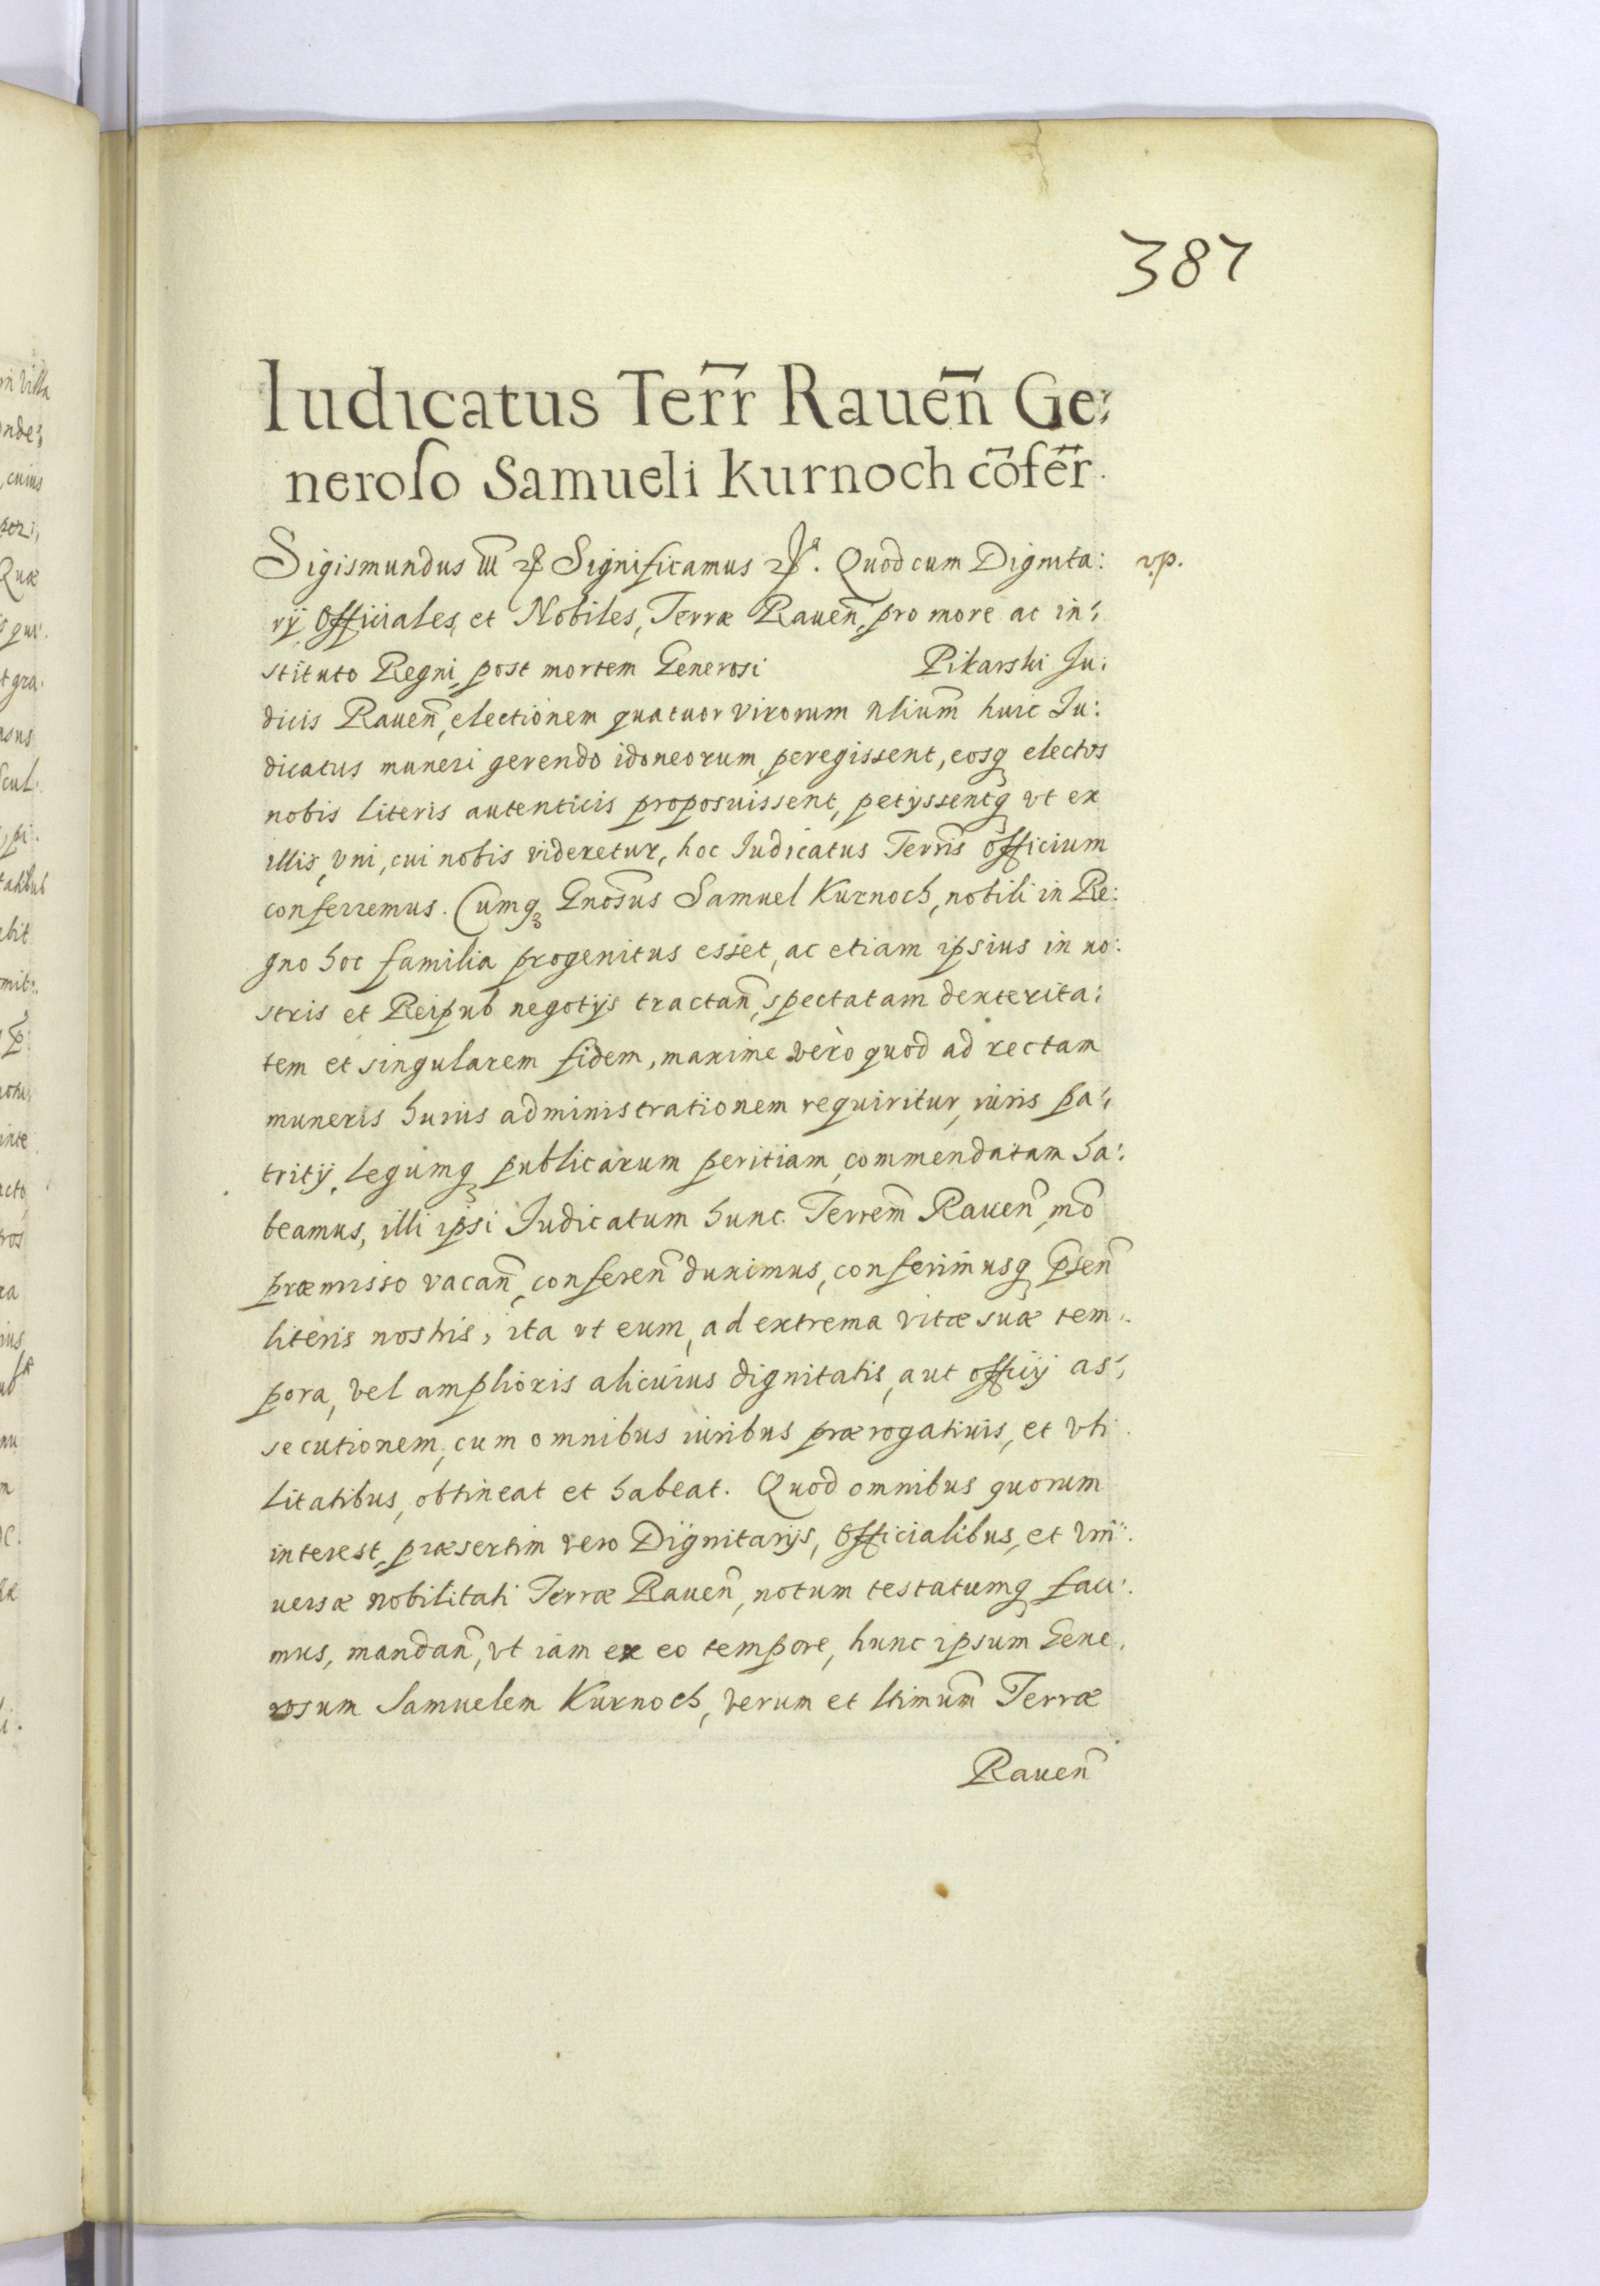 387
Iudicatus Terr̃ Raueñ Ge:
neroso Samueli Kurnoch cõfer̃.
Sigismundus III Significamus. Quod cum Dignita:
v.p.
rij Officiales, et Nobiles, Terræ Raueñ, pro more ac in:
stituto Regni, post mortem Generosi Pikarski Iu:
dicis Raueñ, electionem quatuor virorum nĩlium huic Iu:
dicatus muneri gerendo idoneorum peregissent, eosq3 electos
nobis literis autenticis proposuissent, petijssentq3 vt ex
illis, vni, cui nobis videretur, hoc Iudicatus Terris̃ officium
conferremus. Cumq3 Gnosus̃ Samuel Kurnoch, nobili in Re:
gno hoc familia progenitus esset, ac etiam ipsius in no:
stris et Reipub negotijs tractañ, spectatam dexterita:
tem et singularem fidem, maxime vèro quod ad rectam
muneris huius administrationem requiritur, iuris pa:
tritij, legumq3 publicarum peritiam, commendatam ha:
beamus, illi ipsi Iudicatum hunc Terrem̃ Raueñ, mõ
præmisso vacañ, confereñ duximus, conferimusq3 p̃señ
literis nostris, ita vt eum, ad extrema vitæ suæ tem:
pora, vel amplioris alicuius dignitatis, aut officij as:
secutionem, cum omnibus iuribus prærogatiuis, et vti:
litatibus, obtineat et habeat. Quod omnibus quorum
interest, præsertim vero Dignitarijs, Officialibus, et Vni:
uersæ nobilitati Terræ Raueñ, notum testatumq3 faci:
mus, mandañ, vt iam ex eo tempore, hunc ipsum Gene:
rosum Samuelem Kurnoch, verum et ltimum̃ Terræ
Raueñ